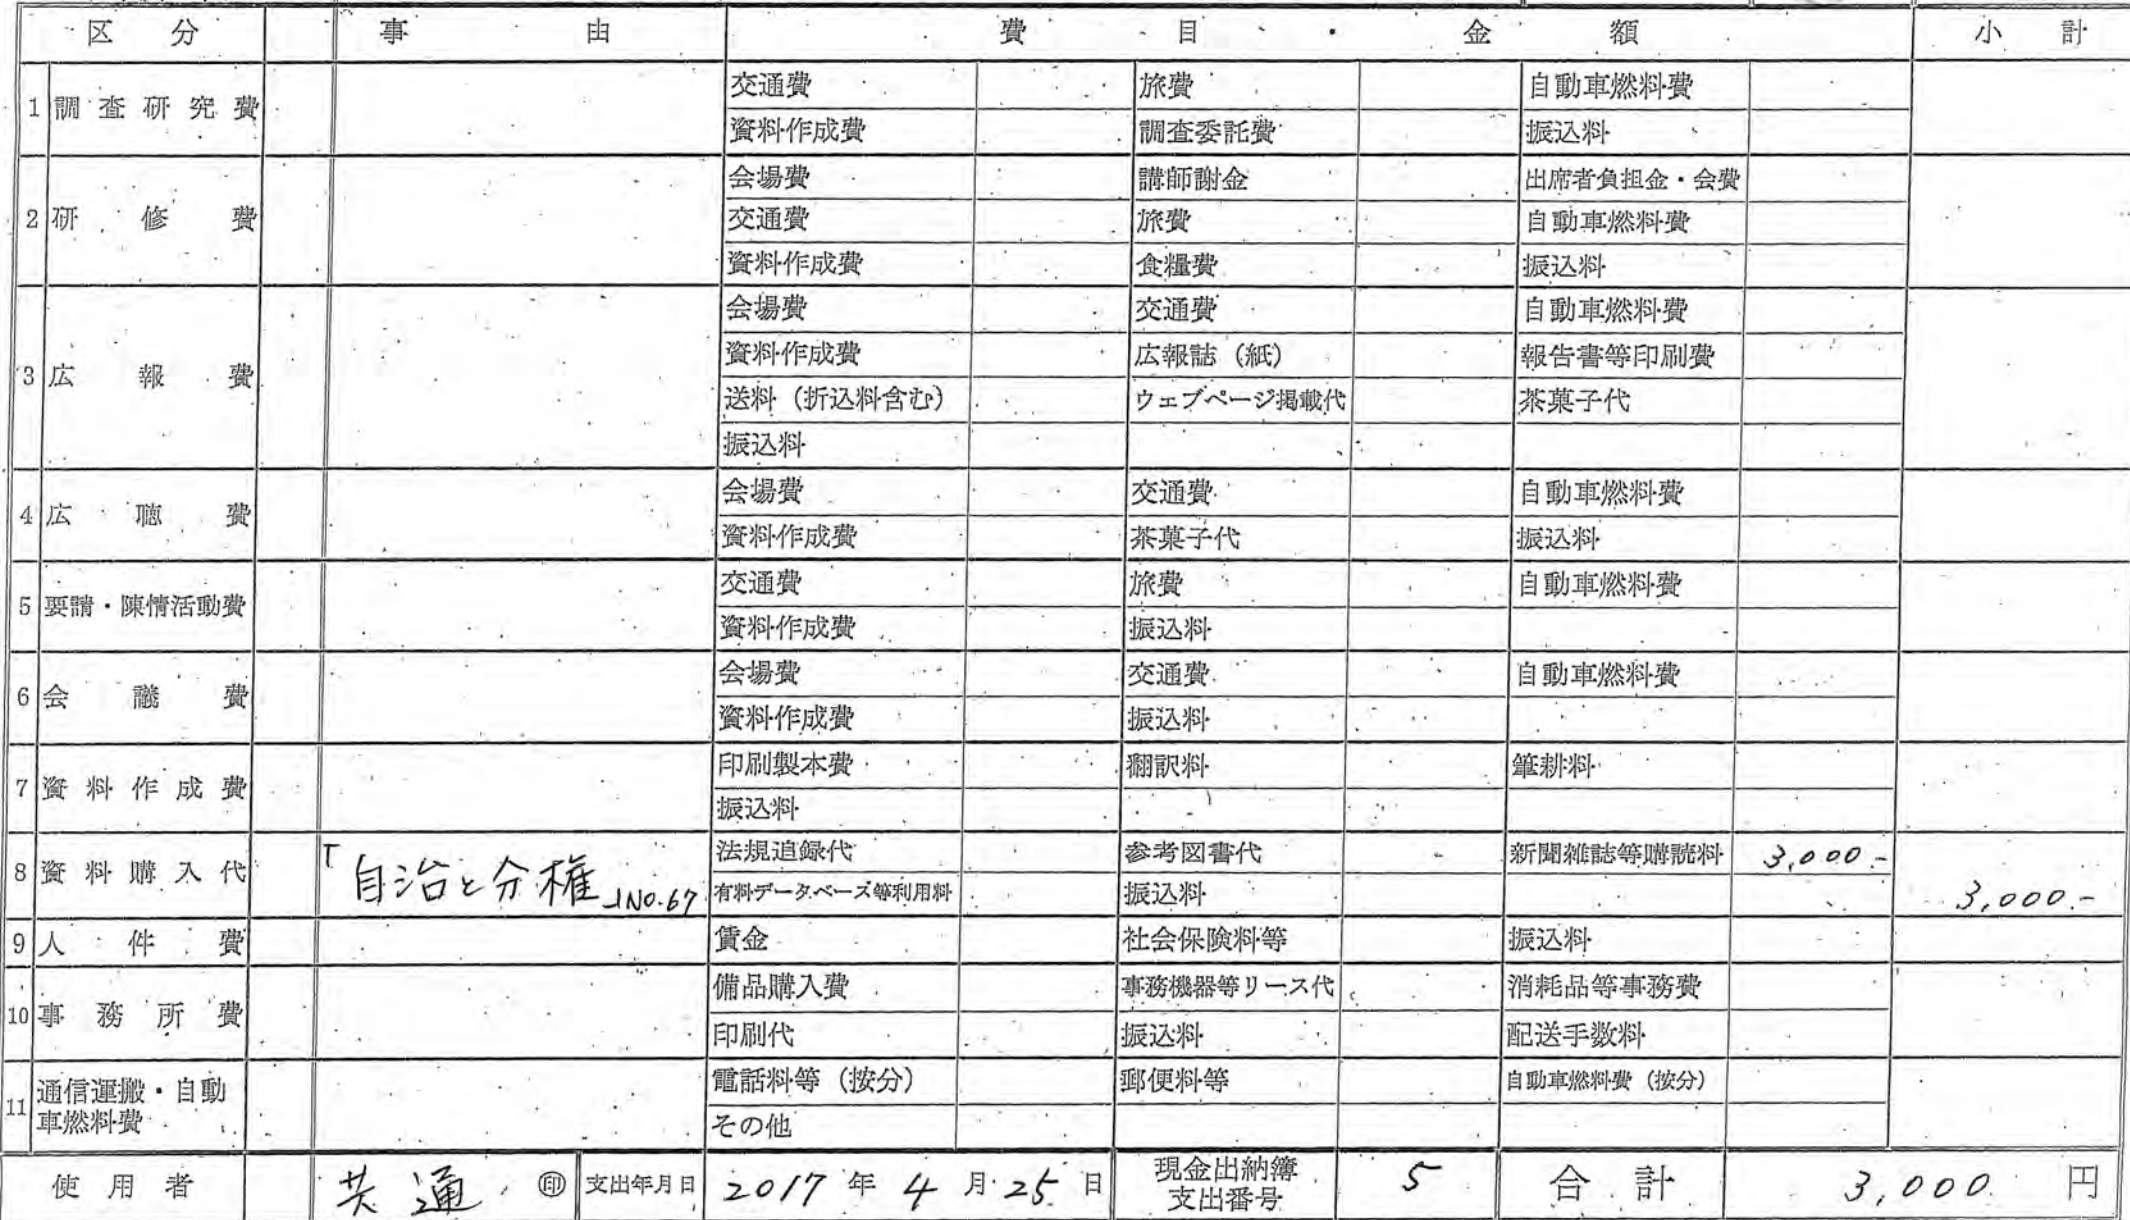 区分 事由 費目・金額 小計
1 調査研究費 交通費 旅費 自動車燃料費
資料作成費 調査委託費 振込料
2 研修費 会場費 講師謝金 出席者負担金・会費
交通費 旅費 自動車燃料費
資料作成費 食糧費 振込料
3 広報費 会場費 交通費 自動車燃料費
資料作成費 広報誌（紙） 報告書等印刷費
送料（折込料含む） ウェブページ掲載代 茶菓子代
振込料
4 広聴費 会場費 交通費 自動車燃料費
資料作成費 茶菓子代 振込料
5 要請・陳情活動費 交通費 旅費 自動車燃料費
資料作成費 振込料
6 会議費 会場費 交通費 自動車燃料費
資料作成費 振込料
7 資料作成費 印刷製本費 翻訳料 筆耕料
振込料
8 資料購入代 「自治と分権」NO.67 法規追録代 参考図書代 新聞雑誌等購読料 3,000.-
有料データベース等利用料 振込料 3,000.-
9 人件費 賃金 社会保険料等 振込料
10 事務所費 備品購入費 事務機器等リース代 消耗品等事務費
印刷代 振込料 配送手数料
11 通信運搬・自動車燃料費 電話料等（按分） 郵便料等 自動車燃料費（按分）
その他
使用者 共通 ㊞ 支出年月日 2017年4月25日 現金出納簿支出番号 5 合計 3,000 円